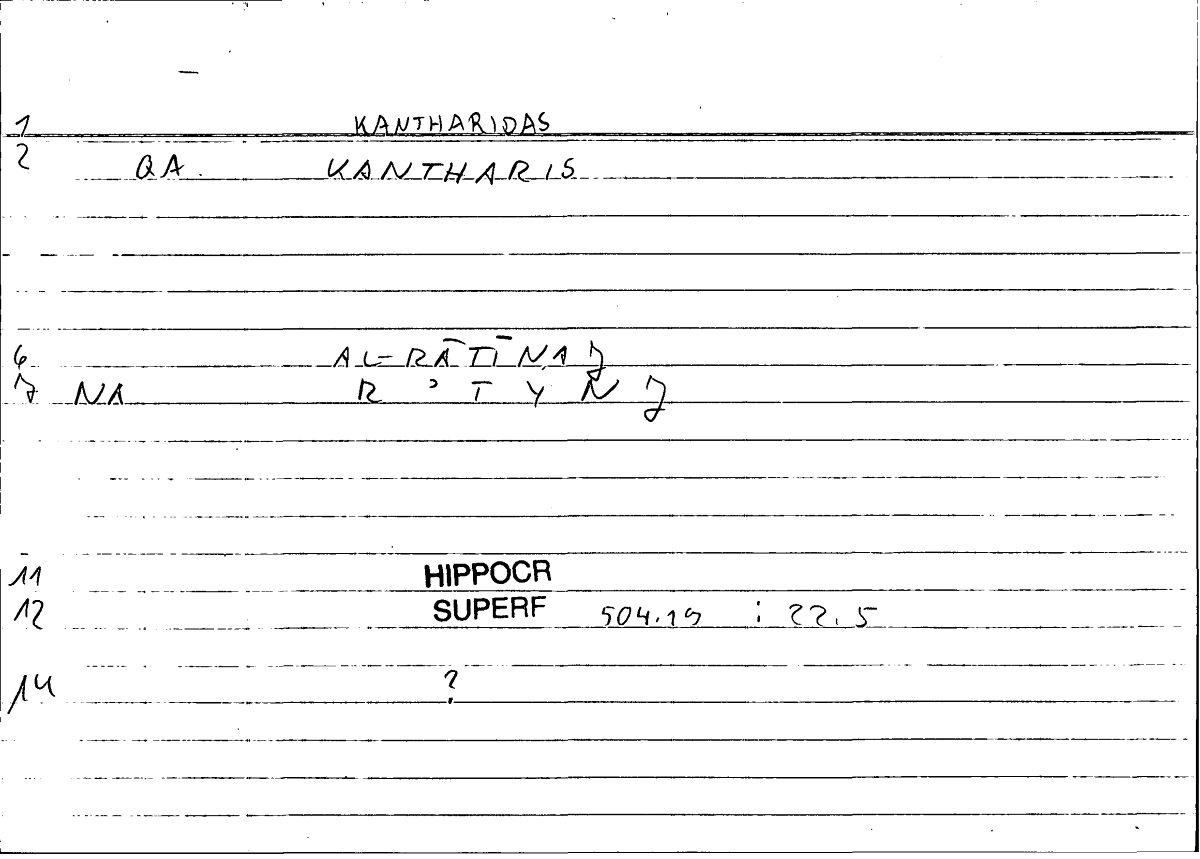 1 KANTHARIDAS
2 QA. KANTHARIS
6 AL-RĀTĪNAJ
7 NA R ' T Y N J
11 HIPPOCR
12 SUPERF 504.19 : 22.5
14 ?